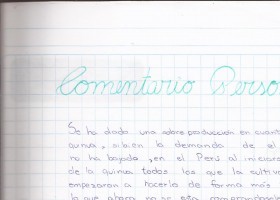 Comentario Perso
Se ha dado una sobre producción en cuant
quinua, si bien la demanda de el
no ha bajado, en el Perú al iniciars
de la quinua todos los que la cultiv
empesaron a hacerla de forma más
lo que ahora no se esta